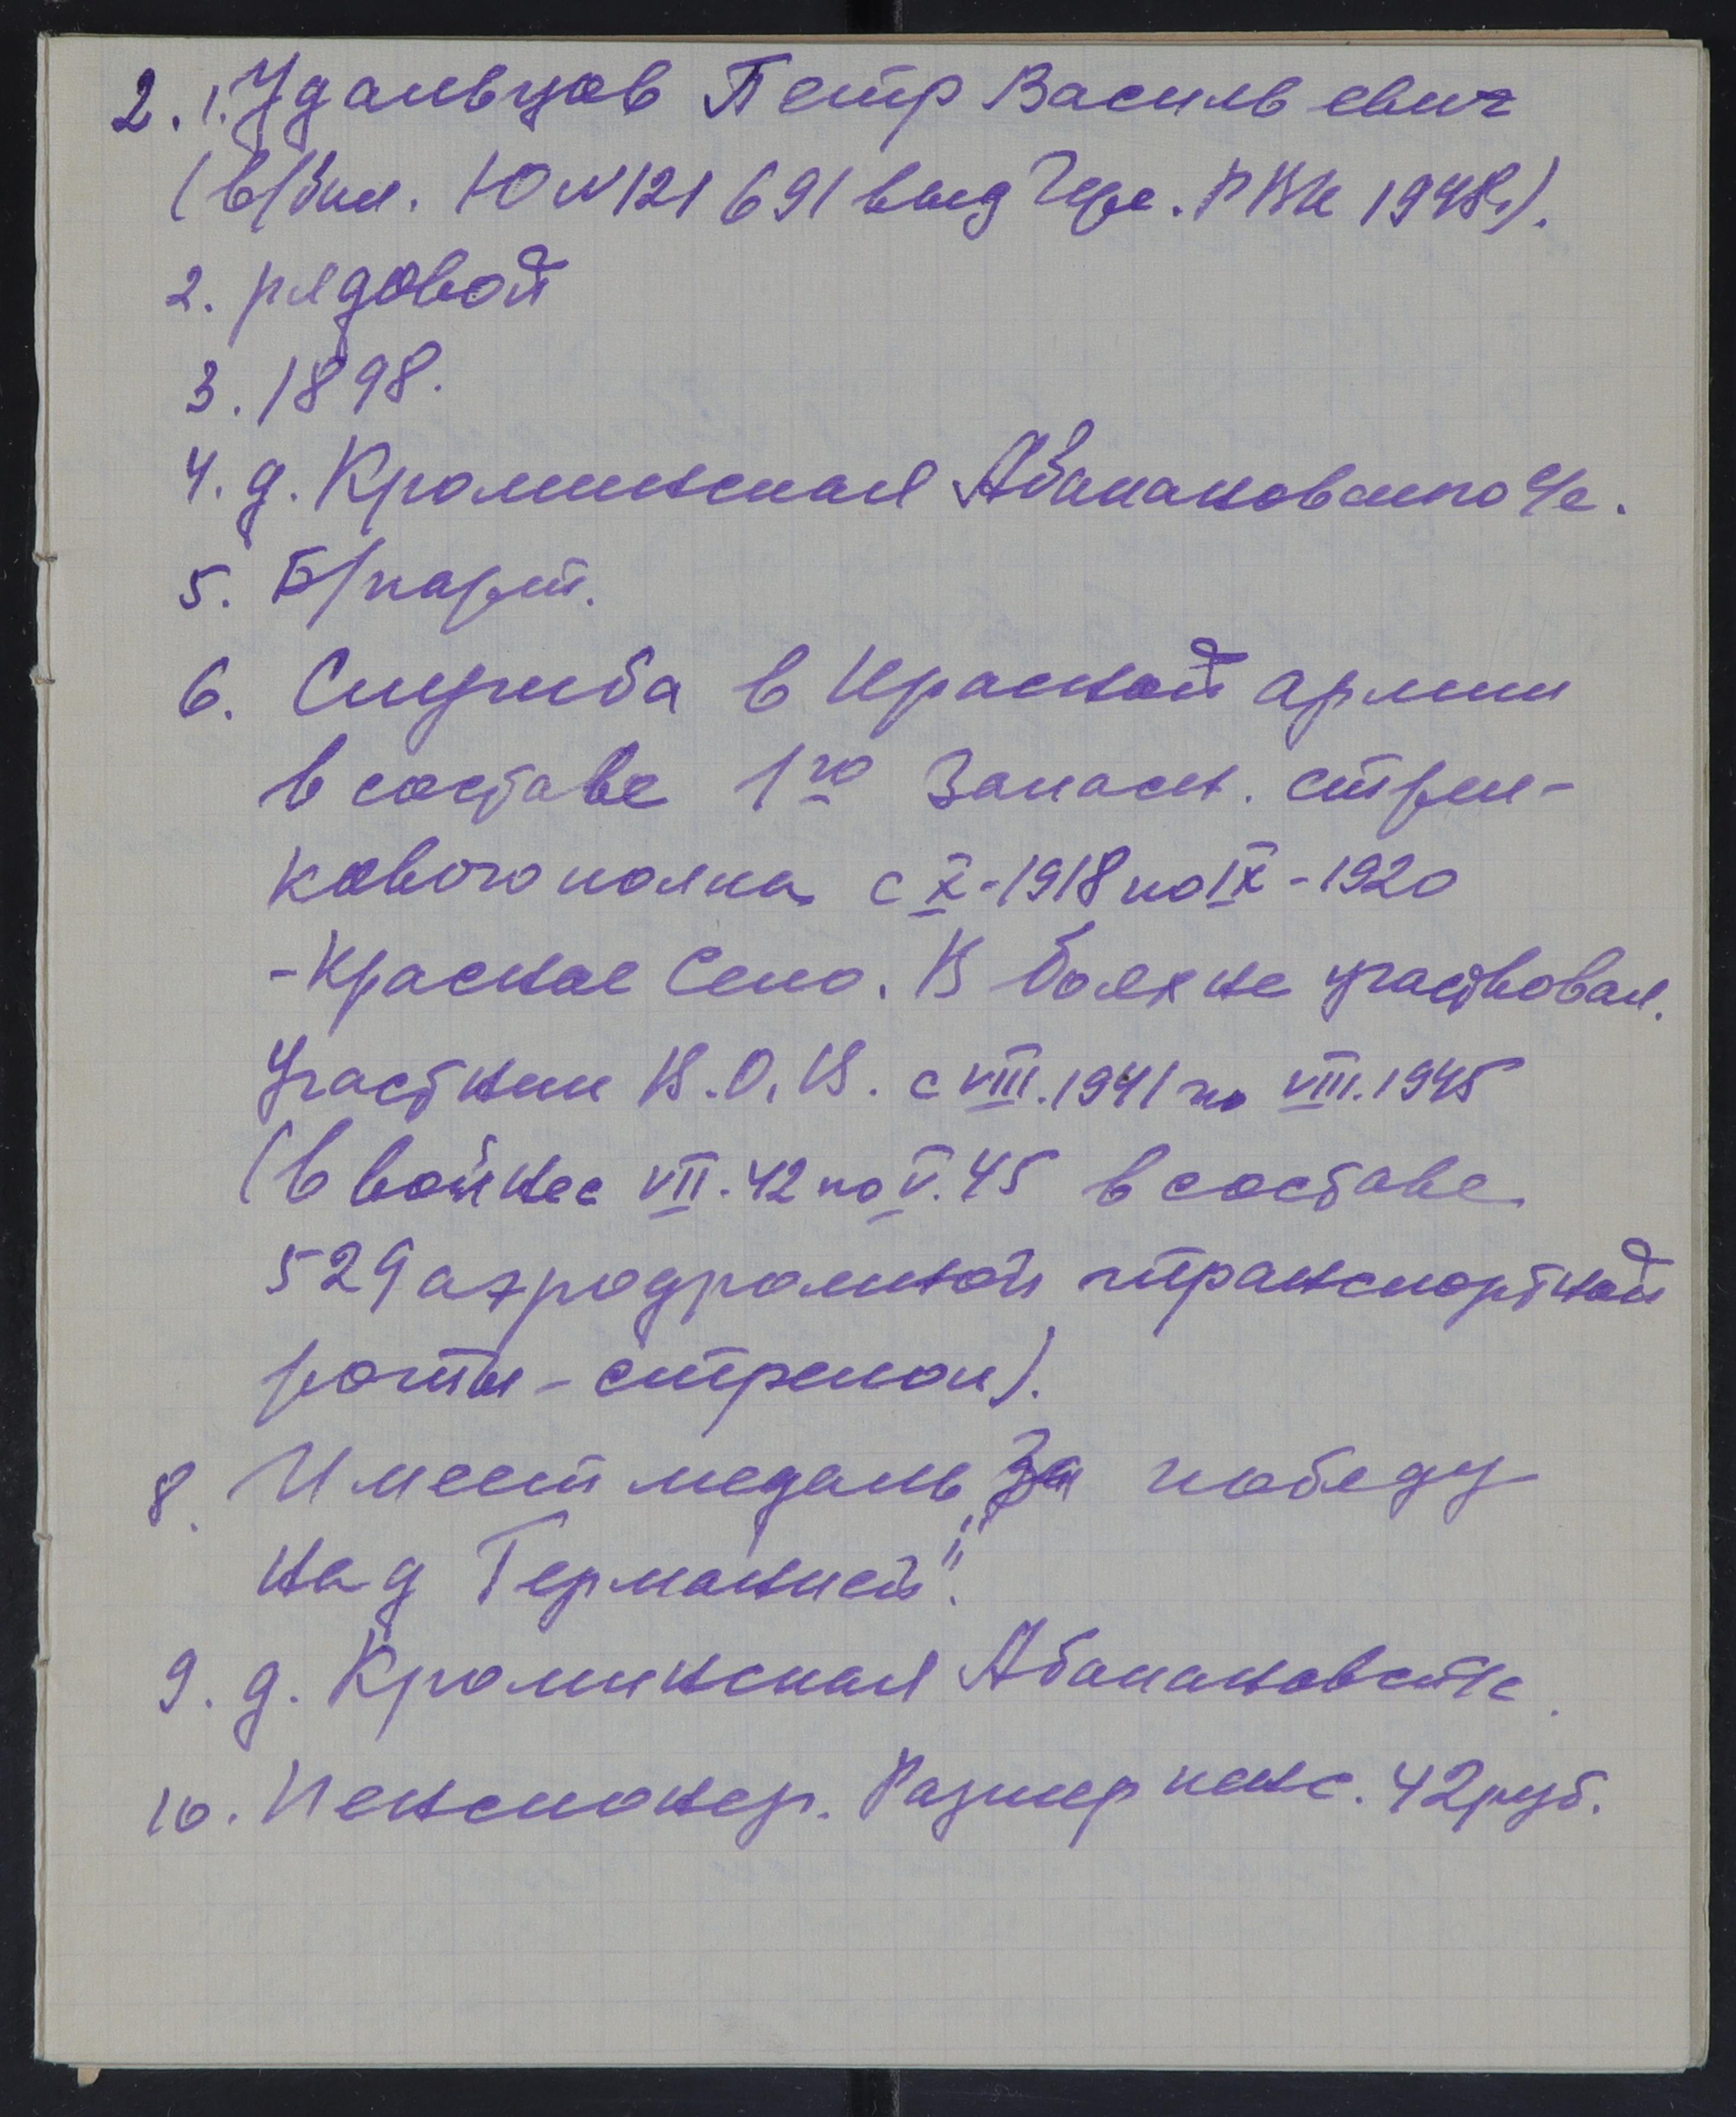 2. 1. Удальцов Петр Васильевич
(в/бил. Ю N 121691 выд Чер. РВК 1948г).
2. рядовой
3. 1898.
4. д. Кроминская Абакановского с/с.
5. Б/парт.
6. Служба в Красной армии
в составе 1го Запасн. стрел-
кового полка с X-1918 по IX-1920
- Красное Село. В боях не участвовал.
Участник В.О.В. с VIII.1941 по VIII.1945
(в войне с VII.42 по V.45 в составе
529 аэродромной транспортной
роты - стрелок).
8. Имеет медаль „За победу
над Германией".
9. д. Кроминская Абакановск с/с.
10. Пенсионер. Размер пенс. 42 руб.